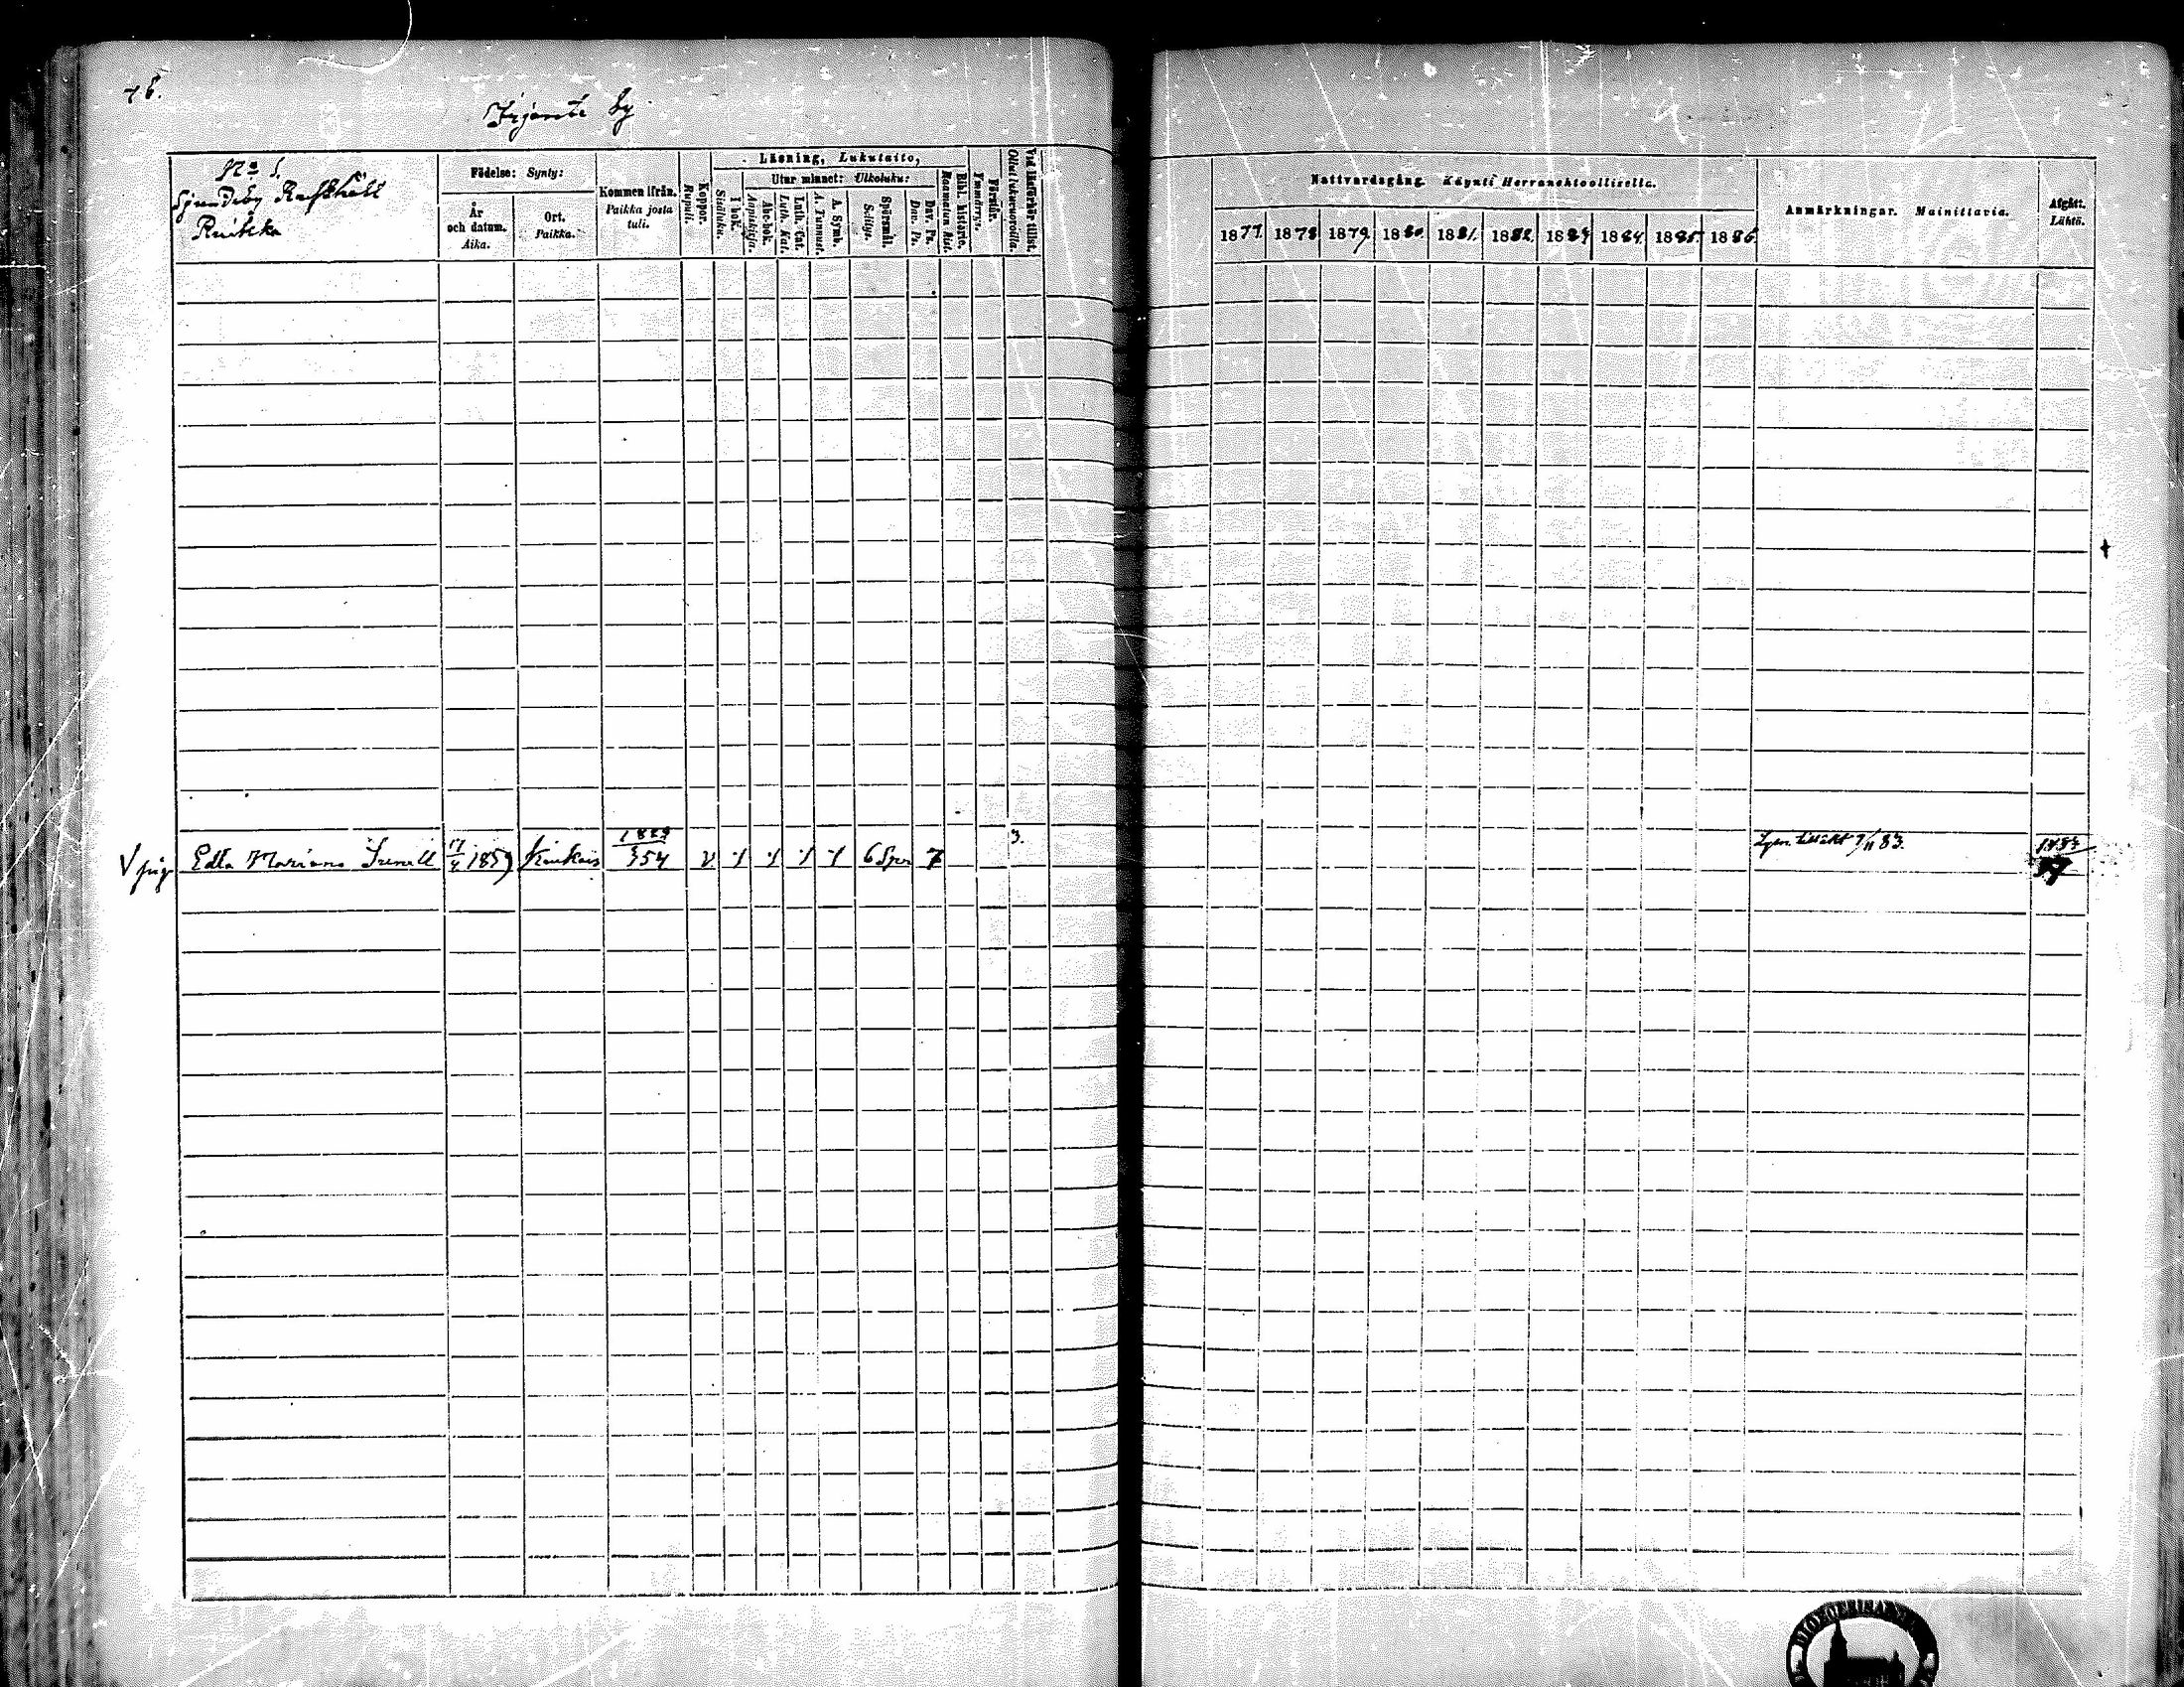 76.
by
No 1.
Sjundeby Rusthåll
Födelse: Synty:
År och datum. Aika.
Ort. Paikka.
Kommen ifrån. Paikka josta tuli.
Koppor. Rupuli.
Läsning, Lukutaito,
I bok. Sisäluku.
Utur minnet: Ulkoluku:
Abc-bok. Aapiskirja.
Luth. Cat. Luth. Kat.
A. Symb. A. Tunnust.
Spörsmål. Selitys.
Dav. Ps. Dav. Ps.
Bibl. historie. Raamatun hist.
Förstår. Ymmärrys.
Vid läsförhör tillst. Ollut lukuvuoroilla.
Nattvardsgång. Käynti Herranehtoollisella.
1877. 1878 1879. 1880. 1881. 1882. 1883 1884. 1885. 1886.
Anmärkningar. Mainittavia.
Afgått. Lähtö.
V pig Edla Mariana 1859 Kiukais 354 v 6 Spm 7 3. 83. 1883